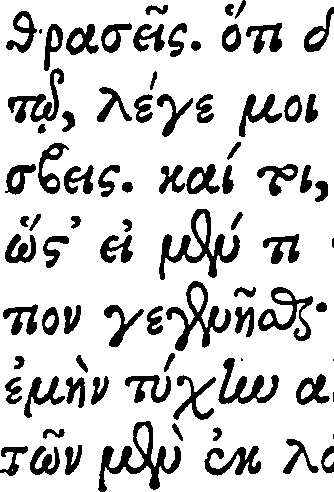 θρασεῖς. ὅτι
τῷ, λέγε μοι
σβεις. καί τι,
ὥστ' εἰ μέν τι
πον γεγενῆσθαι·
ἐμὴν τύχην
τῶν μὲν ἐκ λό